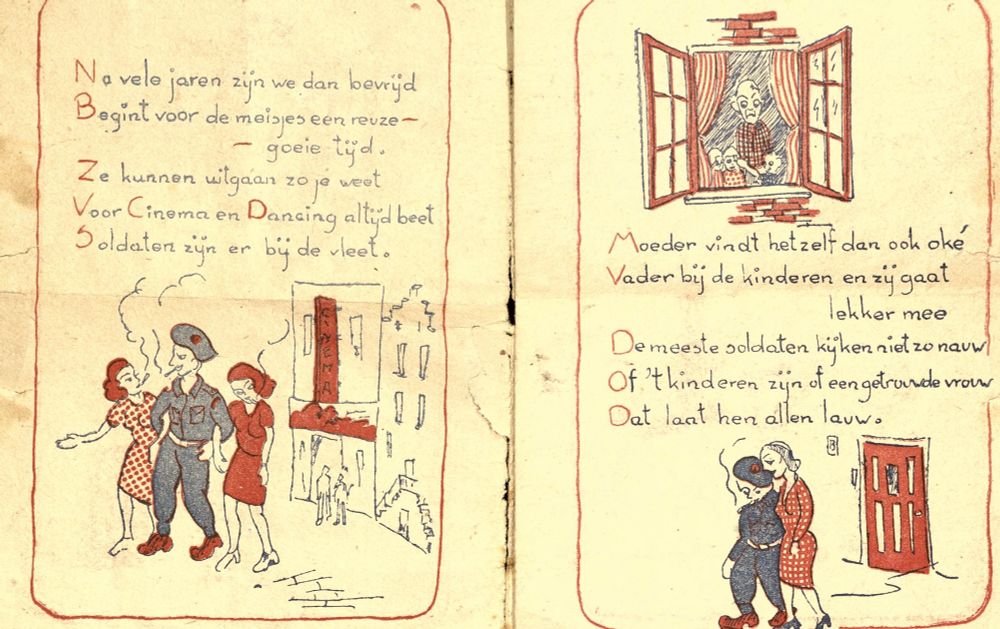 Na vele jaren zijn we dan bevrijd
Begint voor de meisjes een reuze-
- goeie tijd.
Ze kunnen uitgaan zo je weet
Voor Cinema en Dancing altijd beet
Soldaten zijn er bij de vleet.
CINEMA
Moeder vindt hetzelf dan ook oké
Vader bij de kinderen en zij gaat
lekker mee
De meeste soldaten kijken niet zo nauw
Of 't kinderen zijn of een getrouwde vrouw
Dat laat hen allen lauw.